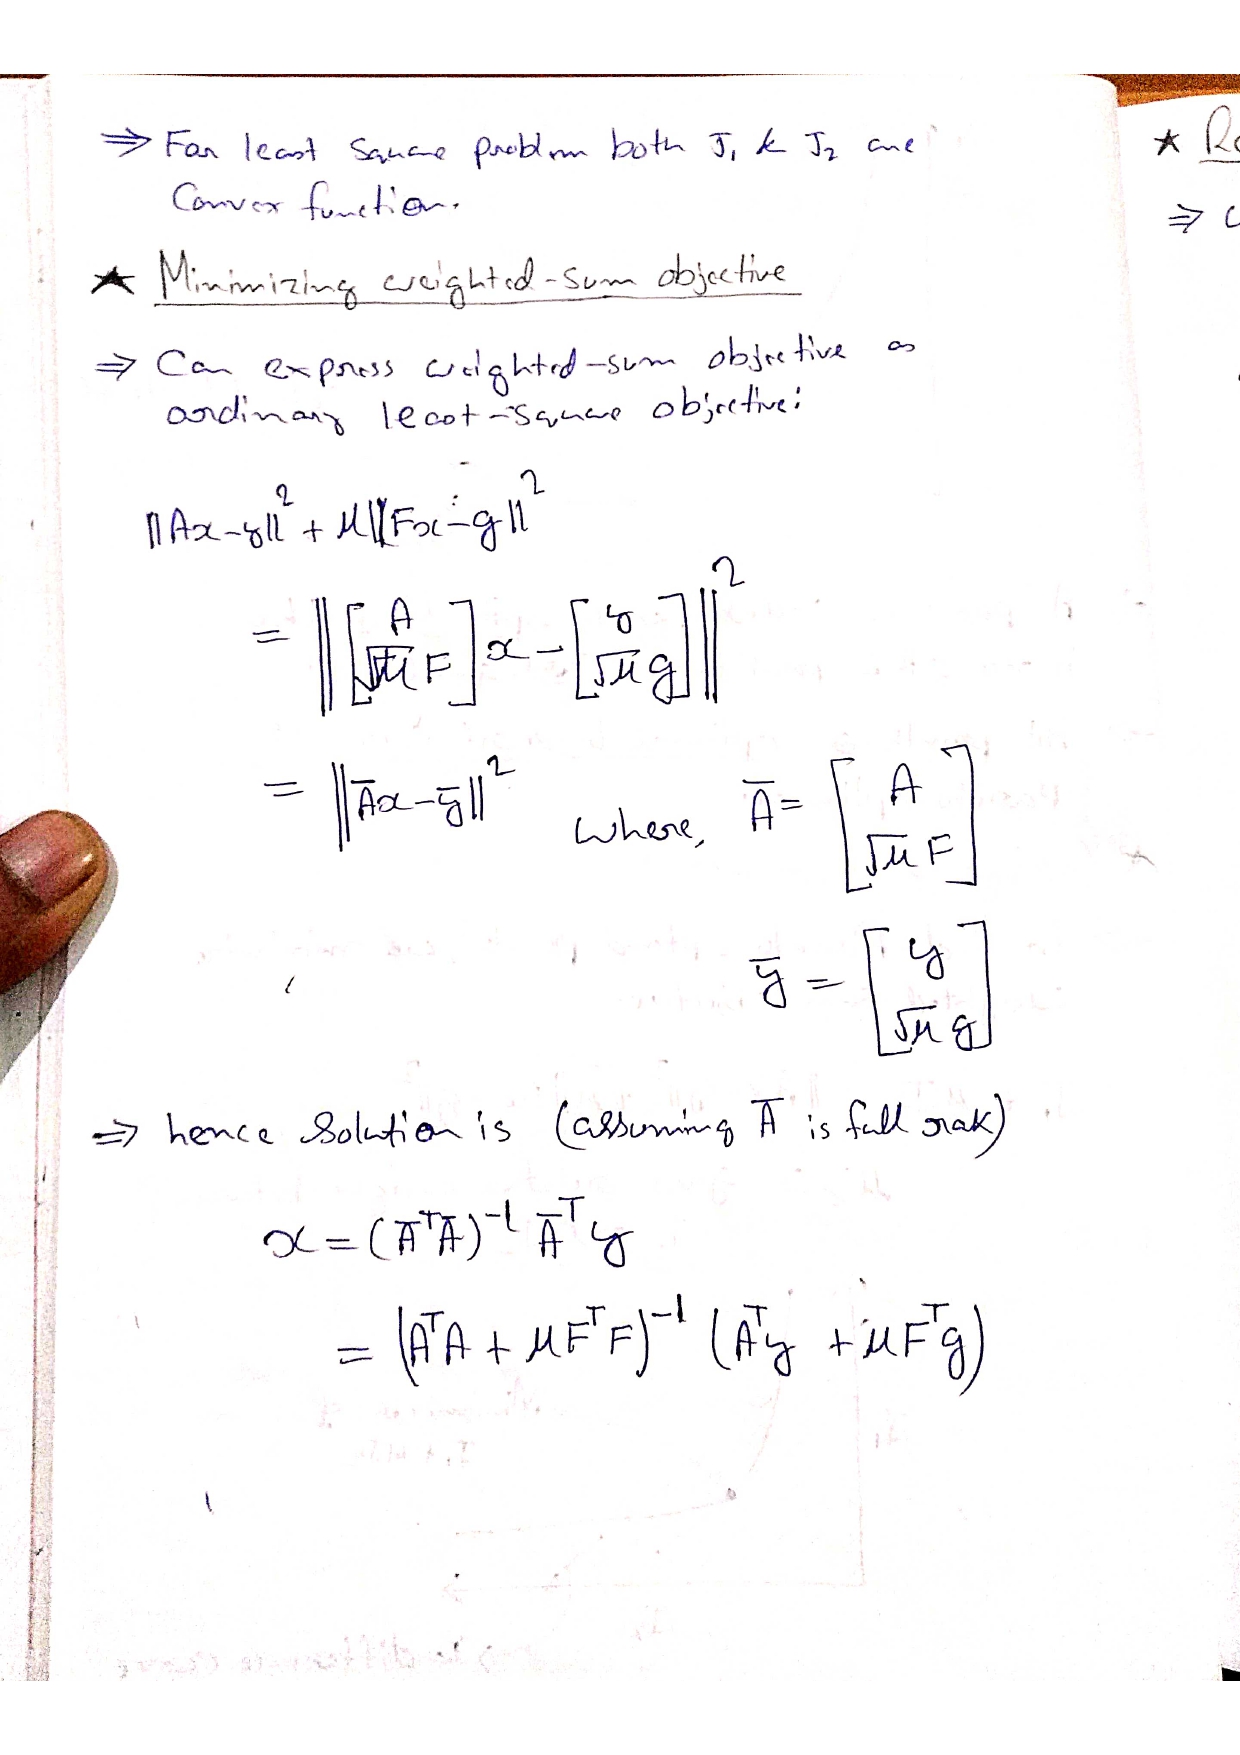 ⇒ For least square problem both J₁ & J₂ are
Convex function.
★ Minimizing weighted-sum objective
⇒ Can express weighted-sum objective as
ordinary least-square objective:
||Ax-y||² + μ||Fx-g||²
= || [A; √μ F] x - [y; √μ g] ||²
= ||A̅x-y̅||² where, A̅ = [A; √μ F]
y̅ = [y; √μ g]
⇒ hence solution is (assuming A̅ is full rak)
x = (A̅ᵀA̅)⁻¹ A̅ᵀy
= (AᵀA + μFᵀF)⁻¹ (Aᵀy + μFᵀg)
★ R
⇒ C